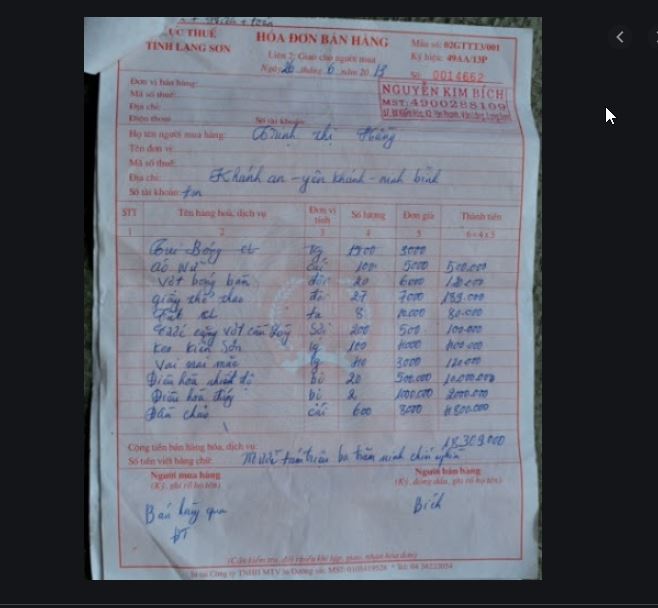 CỤC THUẾ
TỈNH LẠNG SƠN
HÓA ĐƠN BÁN HÀNG
Liên 2: Giao cho người mua
Ngày 26 tháng 6 năm 2013
Mẫu số: 02GTTT3/001
Ký hiệu: 49AA/13P
Số: 0014662
NGUYỄN KIM BÍCH
MST: 4900288109
Đơn vị bán hàng:
Mã số thuế:
Địa chỉ:
Điện thoại Số tài khoản:
Họ tên người mua hàng: Trịnh thị Hằng
Tên đơn vị:
Mã số thuế:
Địa chỉ: Khánh an - yên khánh - ninh bình
Số tài khoản:
STT Tên hàng hoá, dịch vụ Đơn vị tính Số lượng Đơn giá Thành tiền
1 2 3 4 5 6=4x5
kg 1500 3000
cái 100 5000 500.000
Vớt bóng bàn đôi 20 6000 120.000
giầy thể thao đôi 27 7000 189.000
8 10.000 80.000
200 500 100.000
keo kg 100 4000 400.000
Vải may mặc kg 40 3000 120.000
Điều hòa nhiệt độ bộ 20 500.000 10.000.000
Điều hòa bộ 2 1000.000 2000.000
Dân chảo cái 600 8000 4800.000
Cộng tiền bán hàng hóa, dịch vụ: 18.309.000
Số tiền viết bằng chữ: Mười tám triệu ba trăm ninh chín nghìn
Người mua hàng
(Ký, ghi rõ họ tên)
Người bán hàng
(Ký, đóng dấu, ghi rõ họ tên)
Bán hàng qua
ĐT
Bích
(Cần kiểm tra, đối chiếu khi lập, giao, nhận hóa đơn)